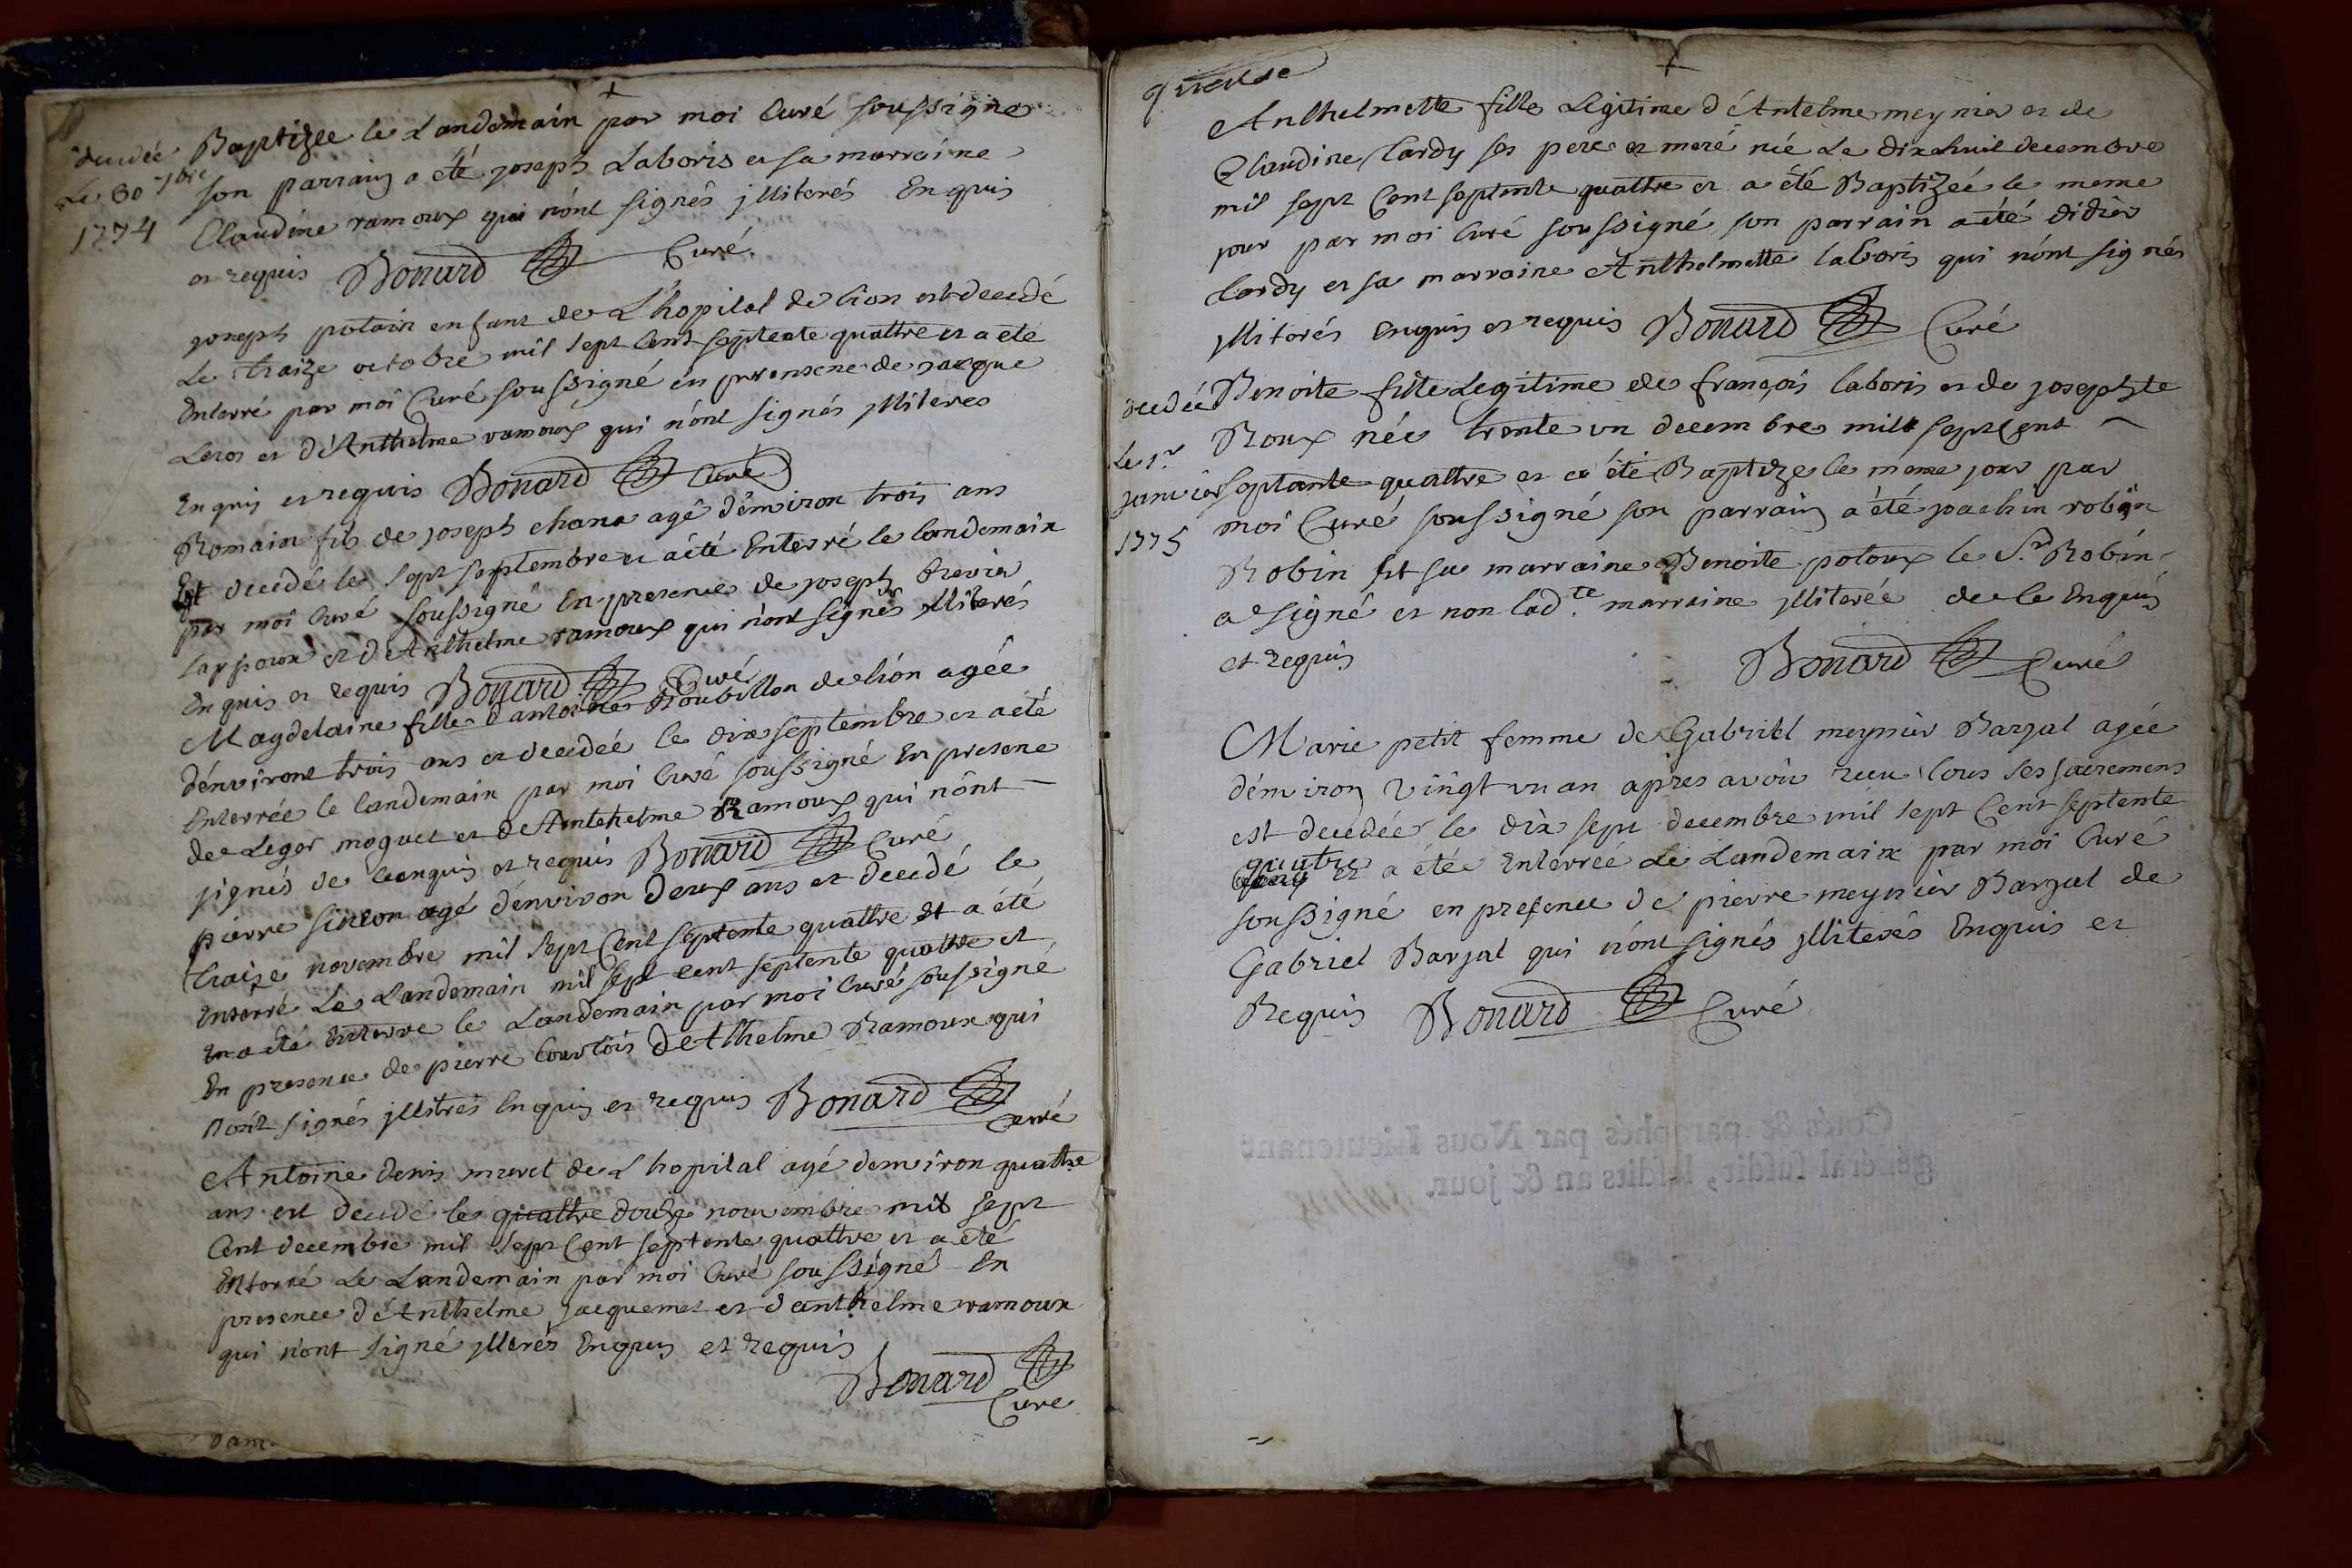 decedée
Le 30 7bre
1774
Baptizée le Landemain par moi Curé soussigné
son parrain a été joseph Laboris et sa marraine
Claudine ramoux qui n'ont signés jlliterés Enquis
et requis Bonard Curé
joseph potain enfant de L'hopital de lion est decedé
Le traize octobre mil sept Cent septente quattre et a été
Enterré par moi Curé soussigné en presensene de jacque
Leros et d'Anthelme ramoux qui n'ont signés jlliteres
Enquis et requis Bonard Curé
Romain fils de joseph chana agé d'environ trois ans
Est decedé le sept septembre et a été Enterré le landemain
par moi Curé soussigné En presence de joseph brevier
et d'Anthelme ramoux qui n'ont signés jlliterés
Enquis et requis Bonard Curé
Magdelaine fille d'antoine Troubillon de lion agée
d'environt trois ans et decedée le dix septembre et a été
Enterrée le landemain par moi Curé soussigné En presene
de Leger moguet et de Antehelme Ramoux qui n'ont
signés de leenquis et requis Bonard Curé
pierre simon agé d'environ deux ans et decedé le
traize novembre mil sept Cent septente quattre et a été
Enterré Le Landemain mil sept cent septente quattre et
en a été Enterre le Landemain par moi Curé soussigné
En presence de pierre Courtois d'Athelme Ramoux qui
n'ont signés jllitrés Enquis et requis Bonard
Curé
Antoine denis muret de L'hopital agé denviron quattre
ans est decedé le quattre douze novembre mil sept
Cent decembre mil sept Cent septente quattre et a été
Enterré Le Landemain par moi Curé soussigné En
presence d'Anthelme jacquemet et d'anthelme ramoux
qui n'ont signé jllterés Enquis et requis
Bonard
Curé
Anthelmette fille Legitime d'Antelme meynier et de
Claudine Cardy ses pere et mere né Le dix huit decembre
mil sept Cent septente quattre et a été Baptizeé le meme
jour par moi Curé soussigné son parrain a été didier
Cardy et sa marraine Anthelmette laboris qui n'ont signés
jlliterés Enquis et requis Bonard Curé
decedée
Le 1r
janvier
1775
Benoite fille Legitime de françois laboris et de josephte
Roux née trente un decembre mill sept Cent
septante quattre et a été Baptize le meme jour par
moi Curé soussigné son parrain a été joachin robin
Robin et sa marraine Benoite potoux le Sr Robin
a signé et non ladte marraine jlliterée de le Enquis
et requis
Bonard Curé
Marie petit femme de Gabriel meynier Barjal agée
d'environ vingt un an apres avoir receu tous ses sacremens
est decedée le dix sept decembre mil sept Cent septente
quatre et a été Enterreé Le Landemain par moi Curé
soussigné en presence de pierre meynier Barjal de
Gabriel Barjal qui n'ont signés jlliterés Enquis et
Requis Bonard Curé
Cotés & paraphés par Nous Lieutenant
général susdit, lesdits an & jour.